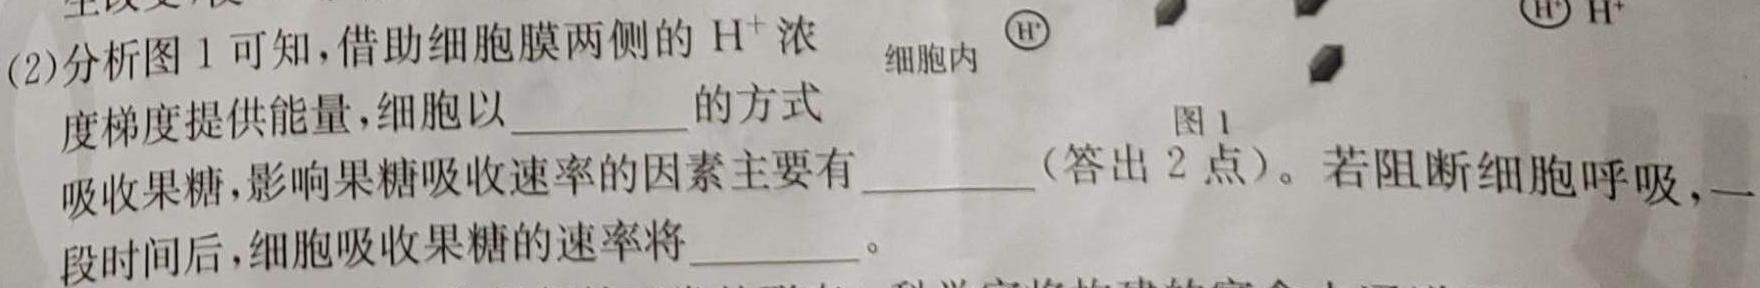 (2)分析图 1 可知,借助细胞膜两侧的 H⁺ 浓
度梯度提供能量,细胞以________的方式
吸收果糖,影响果糖吸收速率的因素主要有________(答出 2 点)。若阻断细胞呼吸,一
段时间后,细胞吸收果糖的速率将________。
细胞内
H⁺
H⁺ H⁺
图 1